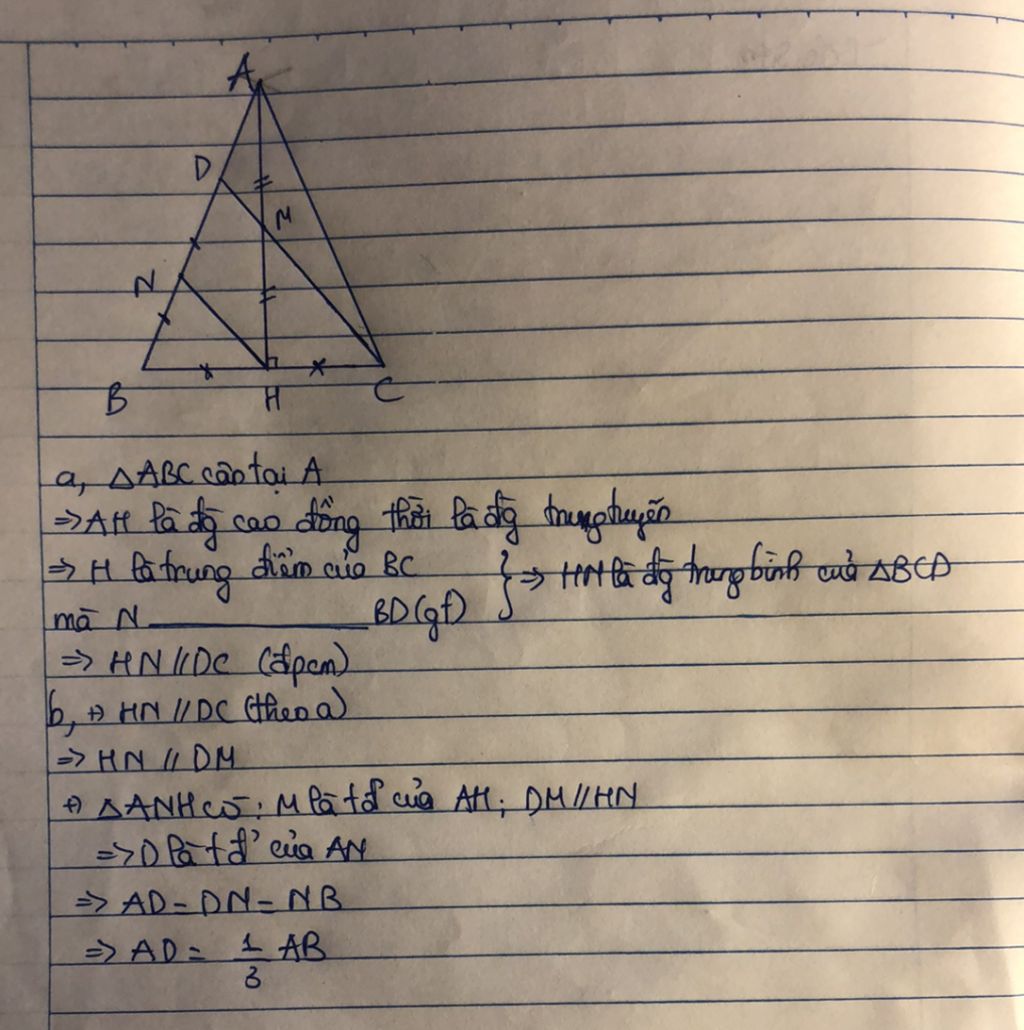 A
D
M
N
B
H
C
a, △ABC cân tại A
=> AH là đg cao đồng thời là đg trung tuyến
=> H là trung điểm của BC } => HN là đg trung bình của △BCD
mà N ____________ BD (gt)
=> HN // DC (đpcm)
b, +) HN // DC (theo a)
=> HN // DM
+) △ANH có: M là tđ của AH; DM // HN
=> D là tđ của AN
=> AD = DN = NB
=> AD = 1/3 AB